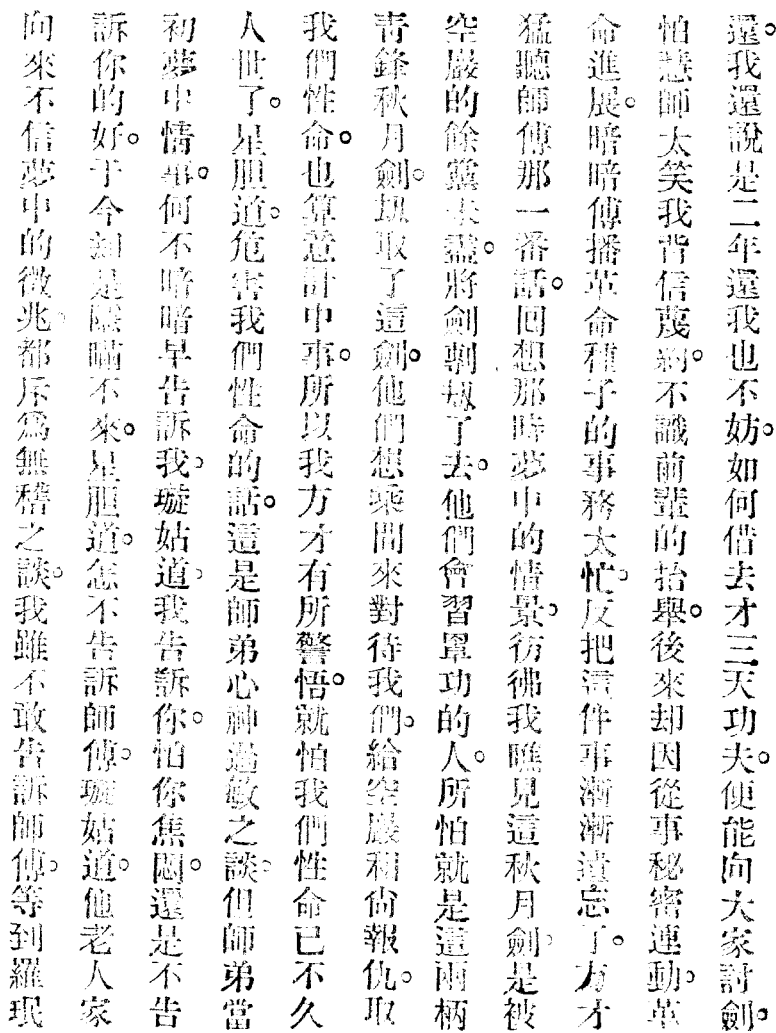 還。我還說是二年還我也不妨。如何借去才三天功夫。便能向大家討劍。
怕慧師太笑我背信蔑約。不識前輩的抬舉。後來却因從事秘密連動。革
命進展。暗暗傅播革命種子的事務太忙。反把這件事漸漸遺忘了。方才
猛聽師傅那一番話。囘想那時夢中的情景。彷彿我瞧見這秋月劍。是被
空嚴的餘黨未盡。將劍剸刼了去。他們會習罩功的人。所怕就是這兩柄
靑鋒秋月劍。刼取了這劍。他們想乘間來對待我們。給空嚴和尙報仇。取
我們性命。也算意計中事。所以我方才有所警悟。就怕我們性命已不久
人世了。星胆道。危害我們性命的話。這是師弟心神過敏之談。但師弟當
初夢中情事。何不暗暗早告訴我。璇姑道。我告訴你。怕你焦悶。還是不告
訴你的好。于今却是隱瞞不來。星胆道。怎不告訴師傅。璇姑道。他老人家
向來不信夢中的徵兆。都斥爲無稽之談。我雖不敢告訴師傅。等到羅珉